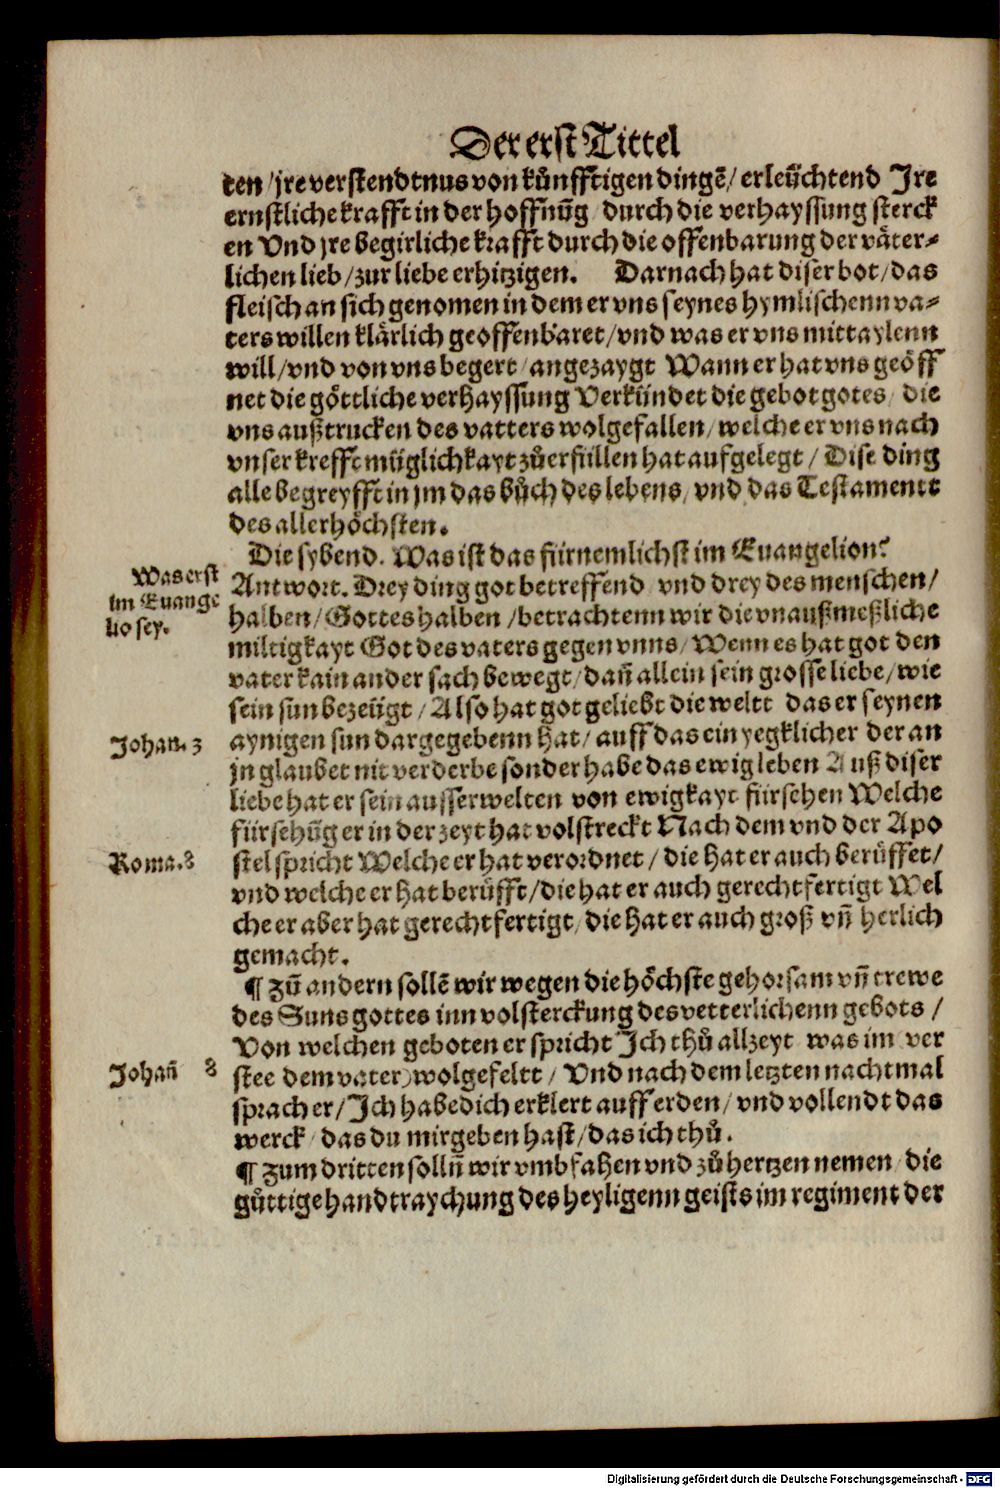 Der erst Tittel
ten / jre verstendtnus von kůnfftigen dingē / erleüchtend Ire
ernstliche krafft in der hoffnūg / durch die verhayssung sterck
en Vnd jre begirliche krafft durch die offenbarung der våter⸗
lichen lieb / zur liebe erhitzigen. Darnach hat diser bot / das
fleisch an sich genomen in dem er vns seynes hymlischenn va⸗
ters willen klårlich geoffenbaret / vnd was er vns mittaylenn
will / vnd von vns begert / angezaygt Wann er hat vns geöff
net die göttliche verhayssung Verkündet die gebot gotes / die
vns außtrucken des vatters wolgefallen / welche er vns nach
vnser krefft müglichkayt zů erfüllen hat aufgelegt / Dise ding
alle begreyfft in jm das bůch des lebens / vnd das Testamentt
des allerhöchsten.
Die sybend. Was ist das fürnemlichst im Euangelion?
Was erst
im Euange
lio sey.
Antwort. Drey ding got betreffend vnd drey des menschen /
halben / Gottes halben / betrachtenn wir die vnaußmeßliche
miltigkayt Got des vaters gegen vnns / Wenn es hat got den
vater kain ander sach bewegt / dañ allein sein grosse liebe / wie
sein sun bezeügt / Also hat got geliebt die weltt das er seynen
Johan. 3
aynigen sun dargegebenn hat / auff das ein yegklicher der an
jn glaubet nit verderbe sonder habe das ewig leben Auß diser
liebe hat er sein ausserwelten von ewigkayt fürsehen Welche
fürsehūg er in der zeyt hat volstreckt Nach dem vnd der Apo
Roma. 8
stel spricht Welche er hat verordnet / die hat er auch berůffet /
vnd welche er hat berůfft / die hat er auch gerechtfertigt Wel
che er aber hat gerechtfertigt / die hat er auch groß vñ herlich
gemacht.
¶ Zū andern sollē wir wegen die höchste gehorsam vñ trewe
des Suns gottes inn volsterckung des vetterlichenn gebots /
Von welchen geboten er spricht Ich thů allzeyt was im ver
Johañ 8
stee dem vater) wolgefeltt / Vnd nach dem letzten nachtmal
sprach er / Ich habe dich erklert auff erden / vnd vollendt das
werck / das du mir geben hast / das ich thů.
¶ Zum dritten sollñ wir vmbfahen vnd zů hertzen nemen / die
gůttige handtraychung des heyligenn geists im regiment der
Digitalisierung gefördert durch die Deutsche Forschungsgemeinschaft - DFG